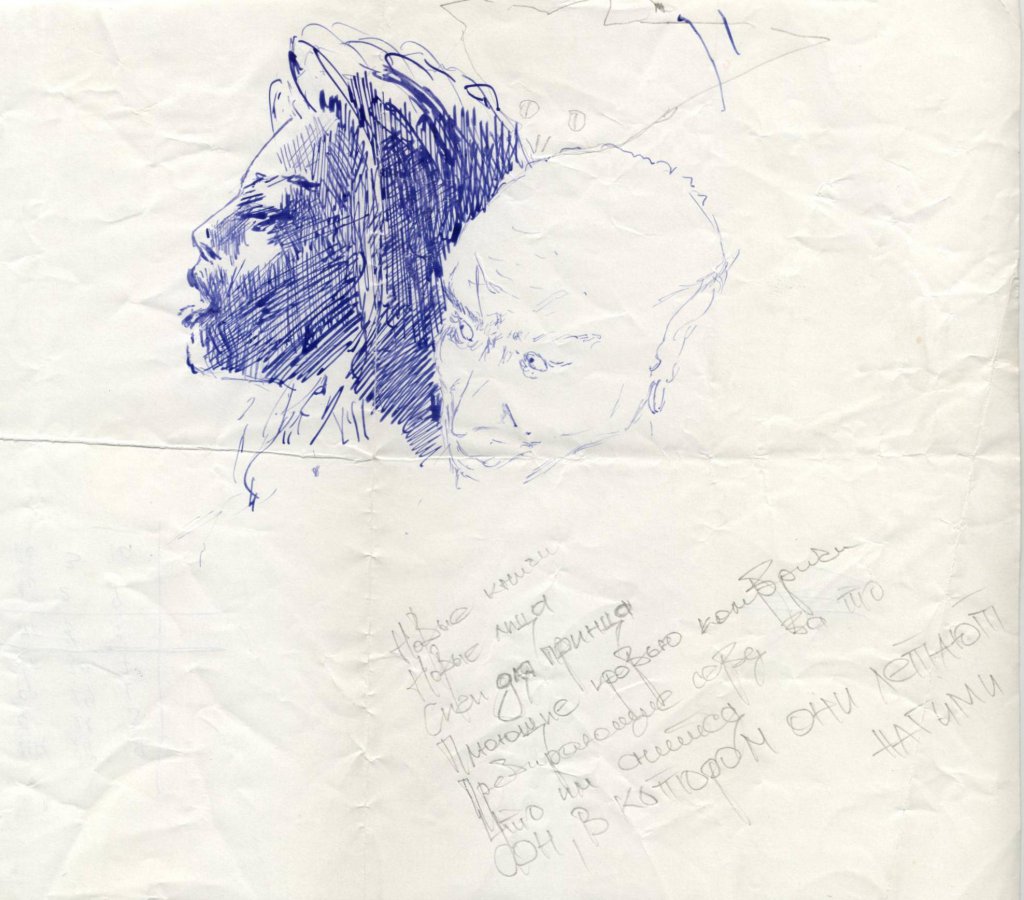 Новые книги
Новые лица
Спеи два принца
Плюющие кровью камбрики
Презирающие себя за то
Что им снится
СОН, В КОТОРОМ ОНИ ЛЕТАЮТ
НАГИМИ